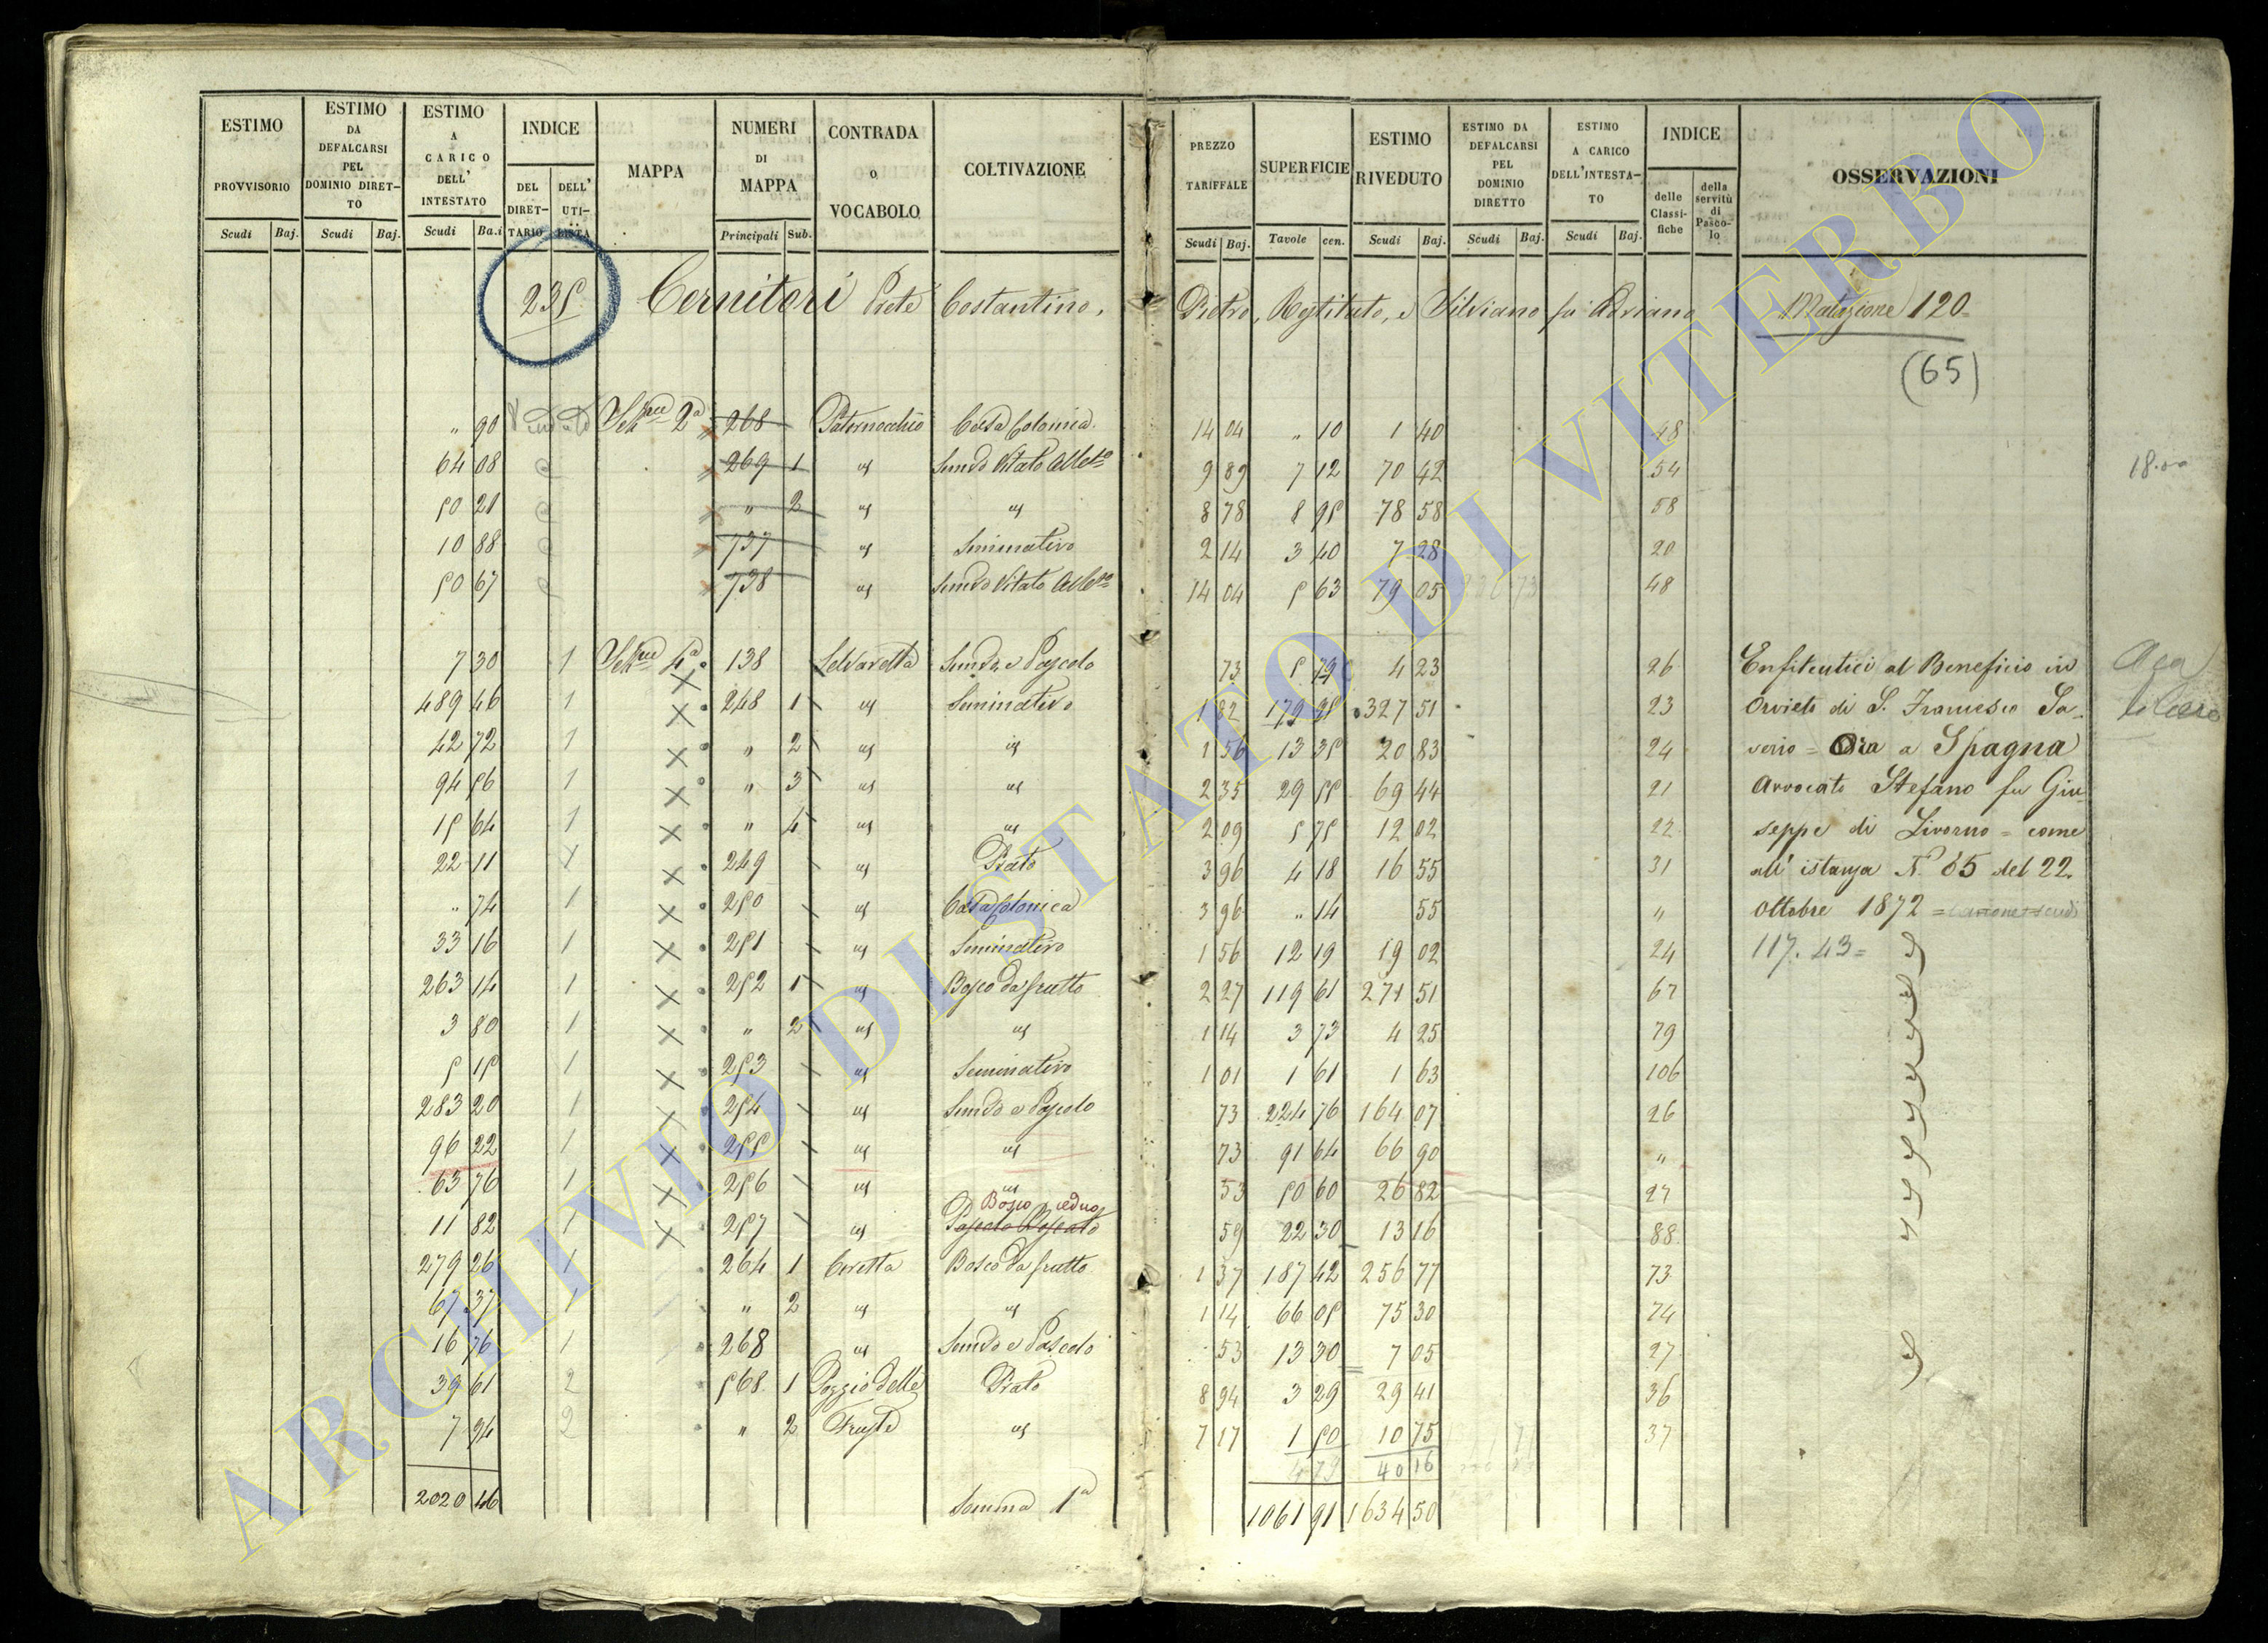 ESTIMO PROVVISORIO Scudi Baj.
ESTIMO DA DEFALCARSI PEL DOMINIO DIRETTO Scudi Baj.
ESTIMO A CARICO DELL' INTESTATO Scudi Ba.i
INDICE DEL DIRETTARIO DELL' UTILISTA
MAPPA
NUMERI DI MAPPA Principali Sub.
CONTRADA O VOCABOLO
COLTIVAZIONE
PREZZO TARIFFALE Scudi Baj.
SUPERFICIE Tavole cen.
ESTIMO RIVEDUTO Scudi Baj.
ESTIMO DA DEFALCARSI PEL DOMINIO DIRETTO Scudi Baj.
ESTIMO A CARICO DELL'INTESTATO Scudi Baj.
INDICE delle Classifiche della servitù di Pascolo
OSSERVAZIONI
235 Cernitori Costantino, Pietro, Restituto, e Silviano fu Adriano 120
(65)
" 90 Sez.ne 2a 268 Paternocchio Casa Colonica 14 04 " 10 1 40 48
64 08 269 1 us Semvo Vitato Allbto 9 89 7 12 70 42 54
50 21 " 2 us us 8 78 8 95 78 58 58
10 88 737 us Seminativo 2 14 3 40 7 28 20
50 67 738 us Semvo Vitato Allbto 14 04 5 63 79 05 48
7 30 1 Sez.ne 4a 138 Selvaretta Semvo e Pascolo 73 5 79 4 23 26
489 46 1 248 1 us Seminativo 1 82 179 95 327 51 23
42 72 1 " 2 us us 1 56 13 35 20 83 24
94 56 1 " 3 us us 2 35 29 55 69 44 21
15 64 1 " 4 us us 2 09 5 75 12 02 22
22 11 1 249 us Prato 3 96 4 18 16 55 31
" 74 1 250 us Casa Colonica 3 96 " 14 55 "
33 16 1 251 us Seminativo 1 56 12 19 19 02 24
263 14 1 252 1 us Bosco da frutto 2 27 119 61 271 51 67
3 80 1 " 2 us us 1 14 3 73 4 25 79
5 15 1 253 us Seminativo 1 01 1 61 1 63 106
283 20 1 254 us Semvo e Pascolo 73 224 76 164 07 26
96 22 1 255 us us 73 91 64 66 90 "
63 76 1 256 us us 53 50 60 26 82 27
Bosco ceduo
11 82 1 257 us Pascolo Boscato 59 22 30 13 16 88
279 26 1 264 1 Ceretta Bosco da frutto 1 37 187 42 256 77 73
67 37 1 " 2 us us 1 14 66 05 75 30 74
16 76 1 268 us Semvo e Pascolo 53 13 30 7 05 27
39 61 2 568 1 Poggio delle Prato 8 94 3 29 29 41 36
7 94 2 " 2 us 7 17 1 50 10 75 37
4 79 40 16
2020 46 Somma 1a 1061 91 1634 50
Enfiteutici al Beneficio in
Orvieto di S. Francesco Sa-
verio = Ora a Spagna
Avvocato Stefano fu Giu-
seppe di Livorno = come
all' istanza N. 85 del 22.
Ottobre 1872
117. 43=
ARCHIVIO DI STATO DI VITERBO